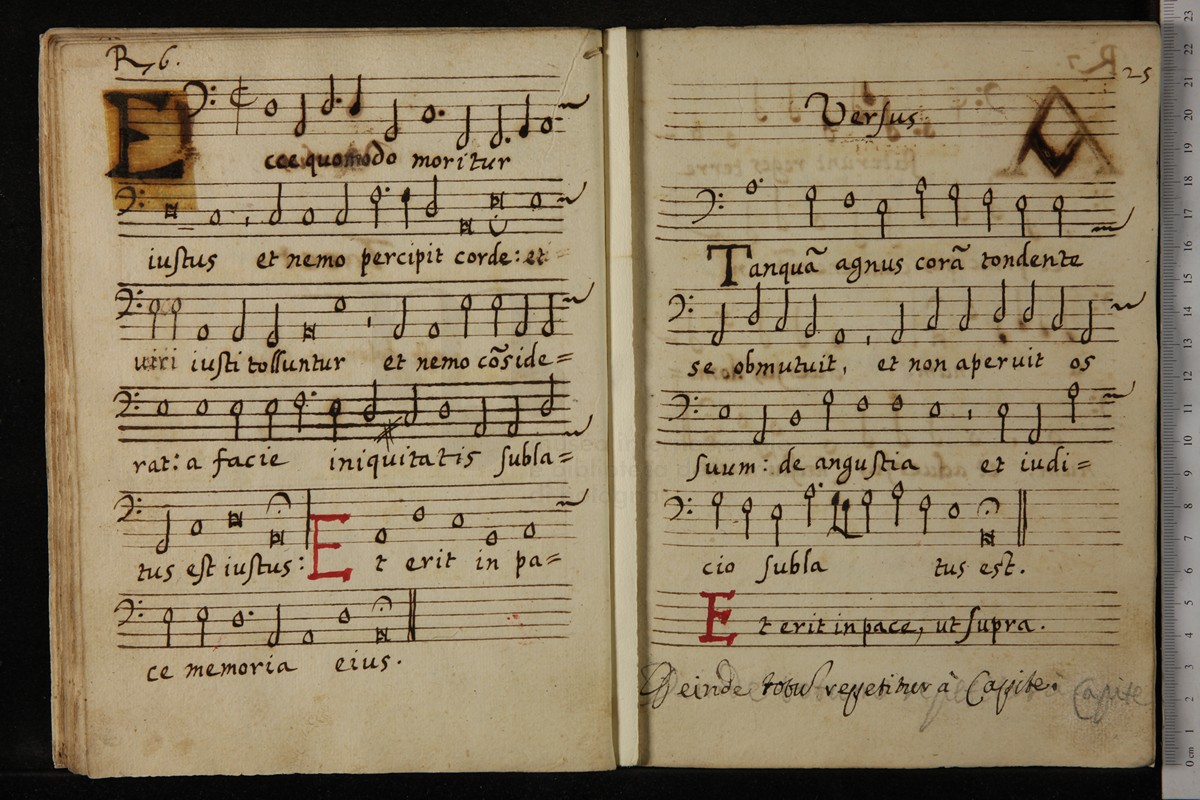 R, 6.
Ecce quomodo moritur
iustus et nemo percipit corde: et
uiri iusti tolluntur et nemo cõside=
rat: a facie iniquitatis subla=
tus est iustus: Et erit in pa=
ce memoria eius.
25
Versus
Tanquã agnus corã tondente
se obmutuit, et non aperuit os
suum: de angustia et iudi=
cio subla tus est.
Et erit in pace, ut supra.
Deinde totus repetitur à Capite.
Capite